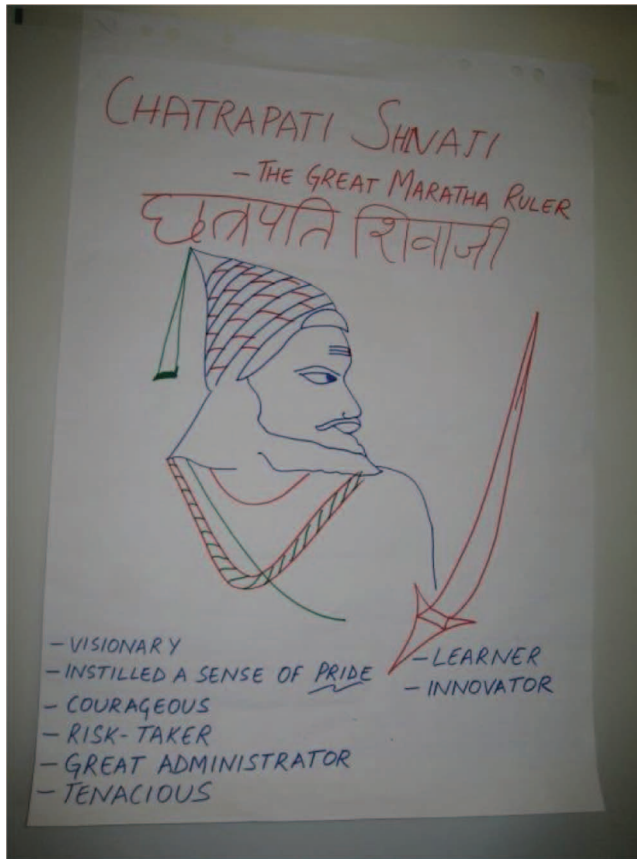 CHATRAPATI SHIVAJI
- THE GREAT MARATHA RULER
छत्रपति शिवाजी
- VISIONARY
- INSTILLED A SENSE OF PRIDE
- COURAGEOUS
- RISK-TAKER
- GREAT ADMINISTRATOR
- TENACIOUS
- LEARNER
- INNOVATOR